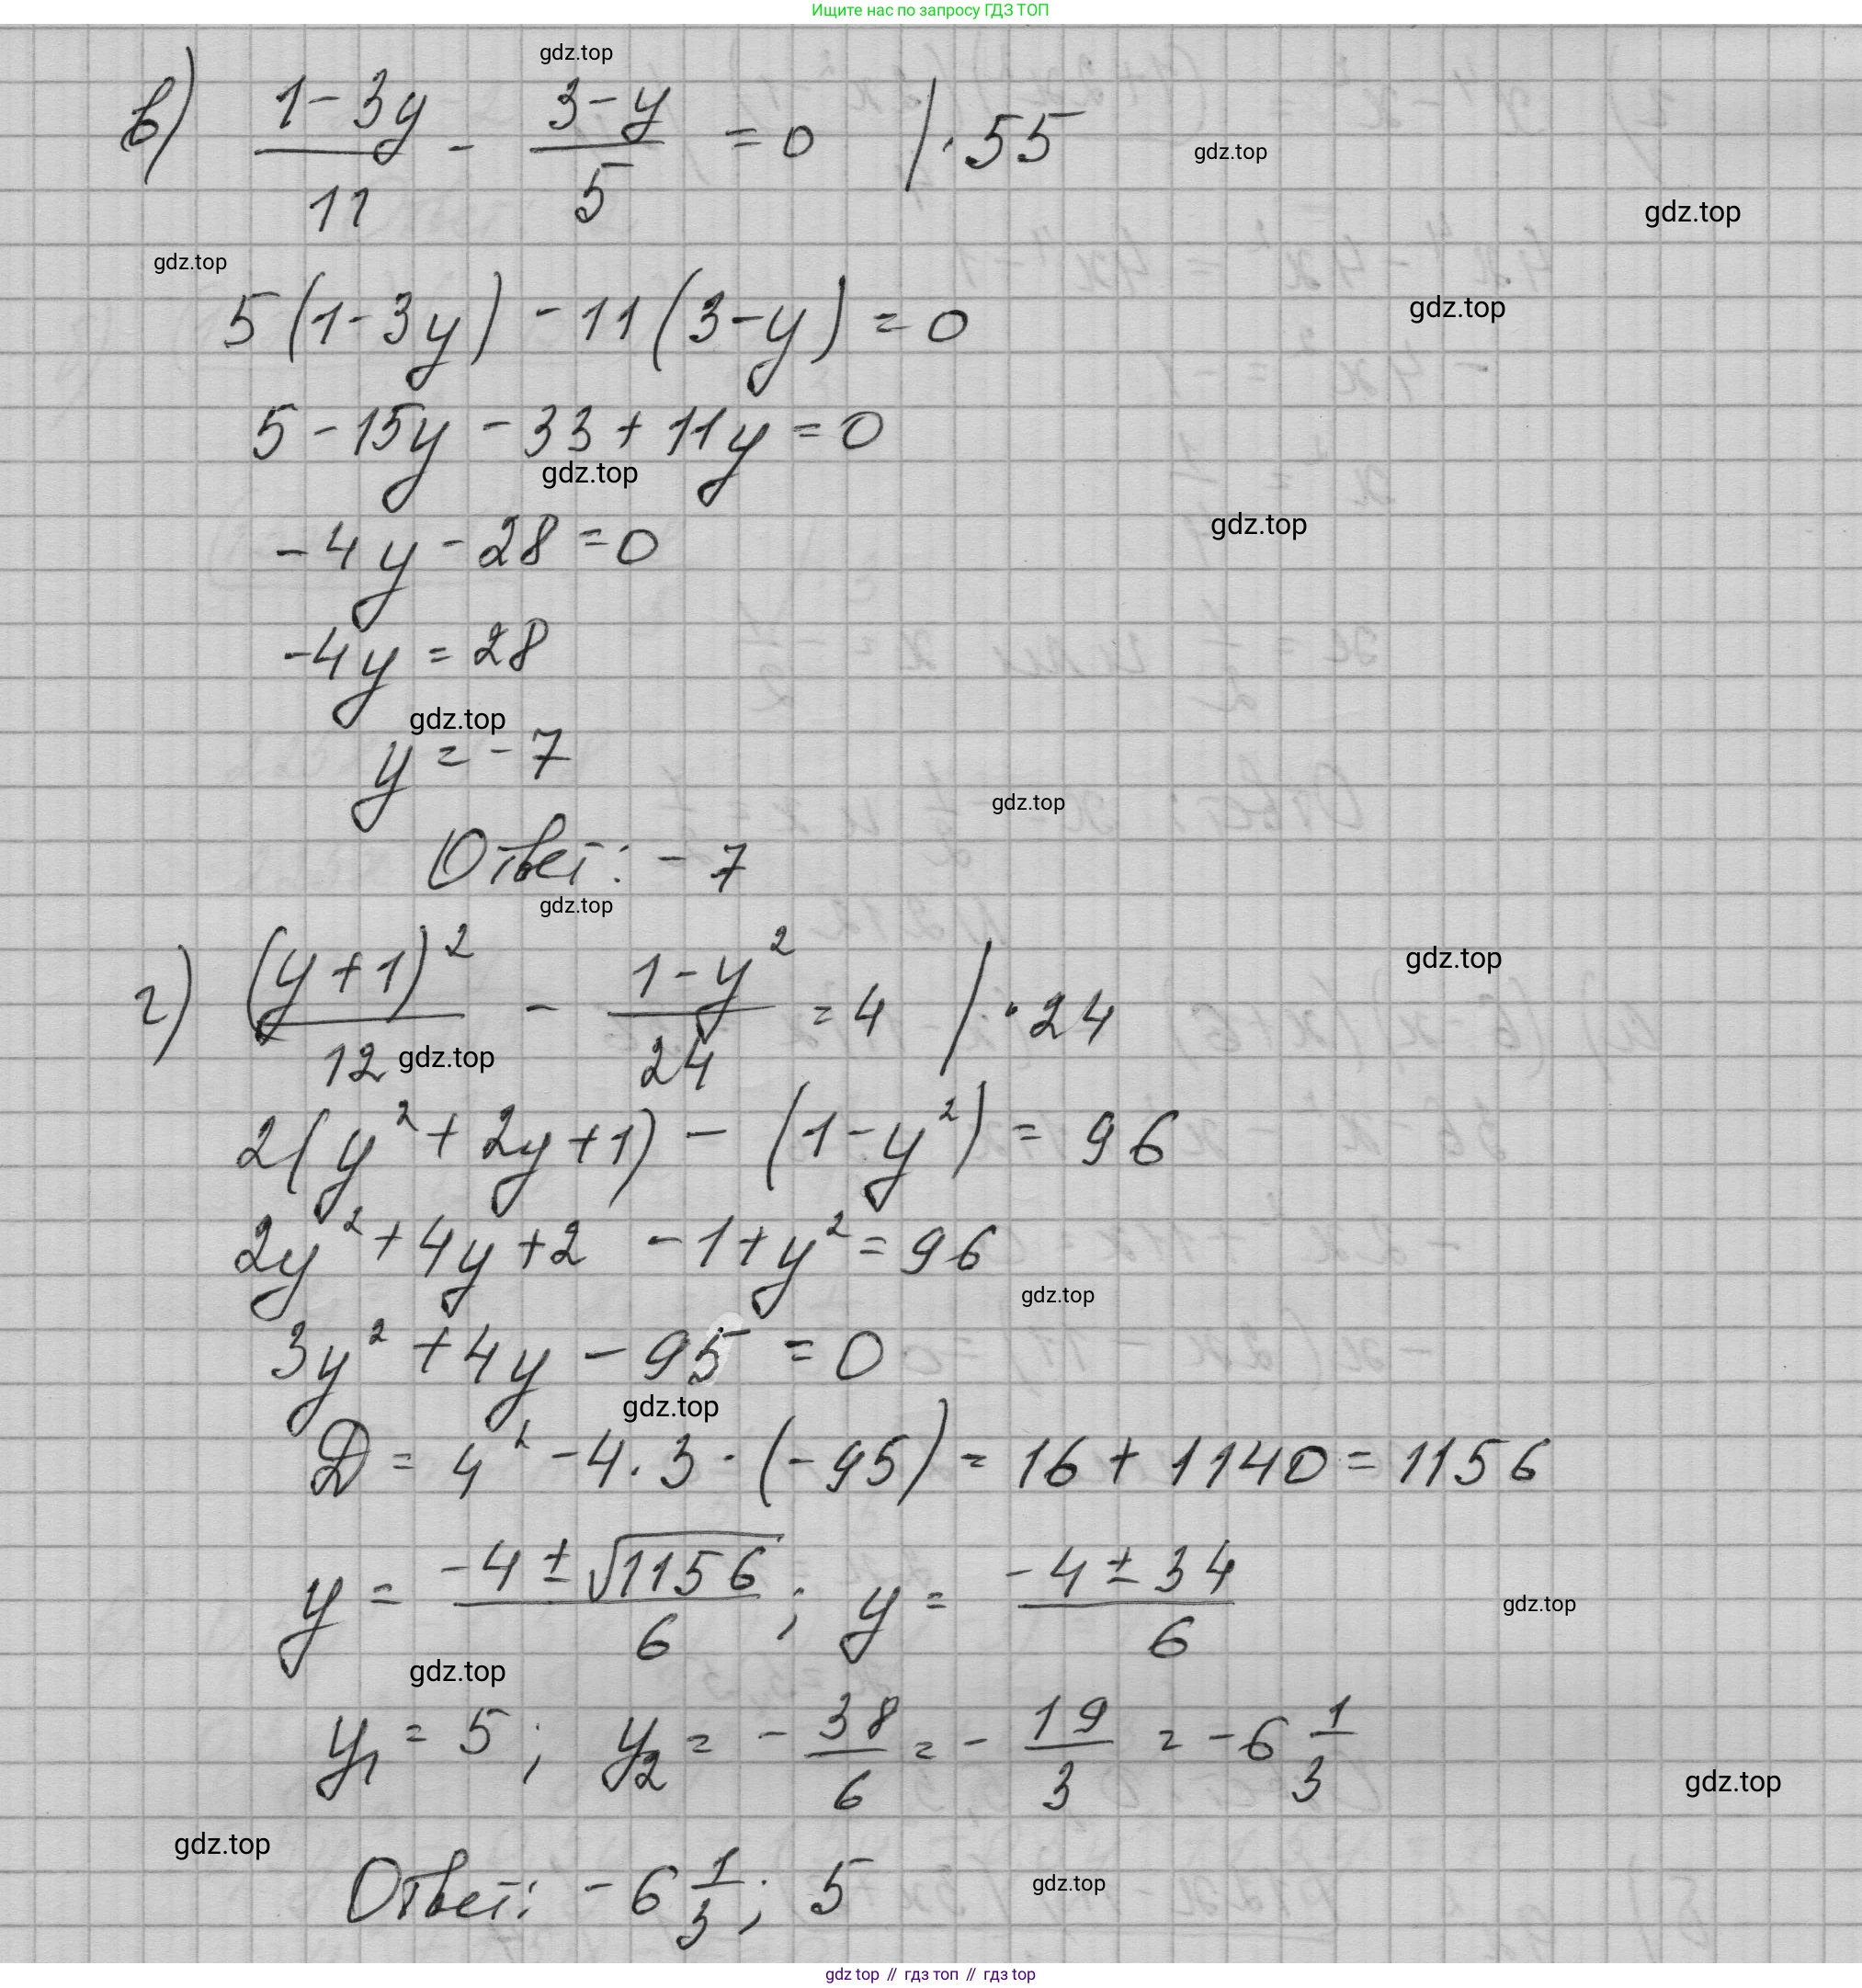 Ищите нас по запросу ГДЗ ТОП
gdz.top
в) (1-3y)/11 - (3-y)/5 = 0 / · 55
gdz.top
gdz.top
gdz.top
5(1-3y) - 11(3-y) = 0
gdz.top
5 - 15y - 33 + 11y = 0
gdz.top
gdz.top
-4y - 28 = 0
-4y = 28
gdz.top
y = -7
gdz.top
Ответ: -7
gdz.top
gdz.top
г) (y+1)²/12 - (1-y²)/24 = 4 / · 24
gdz.top
2(y² + 2y + 1) - (1-y²) = 96
2y² + 4y + 2 - 1 + y² = 96
gdz.top
3y² + 4y - 95 = 0
gdz.top
D = 4² - 4 · 3 · (-95) = 16 + 1140 = 1156
y = (-4 ± √1156)/6 ; y = (-4 ± 34)/6
gdz.top
gdz.top
y₁ = 5 ; y₂ = - 38/6 = - 19/3 = -6 1/3
gdz.top
gdz.top
Ответ: -6 1/3 ; 5
gdz.top
gdz top // гдз топ // гдз top